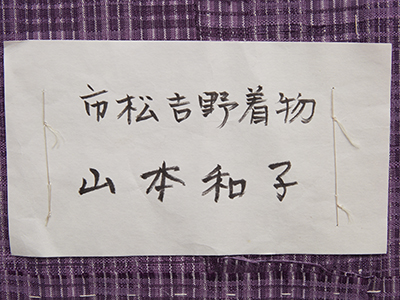 市松吉野着物
山本和子